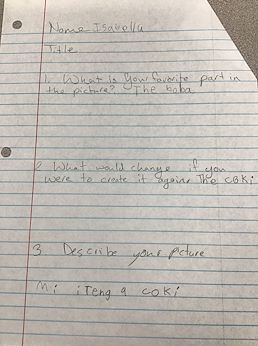 Name Isabella
Title
1. What is your favorite part in
the picture? The boba
2 What would change if you
were to create it again? The coki
3. Describe your picture
Mi iTeng a coki